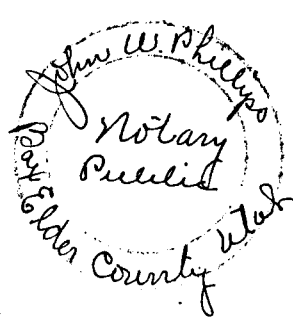 John W. Phillips
Notary
Public
Box Elder County Utah